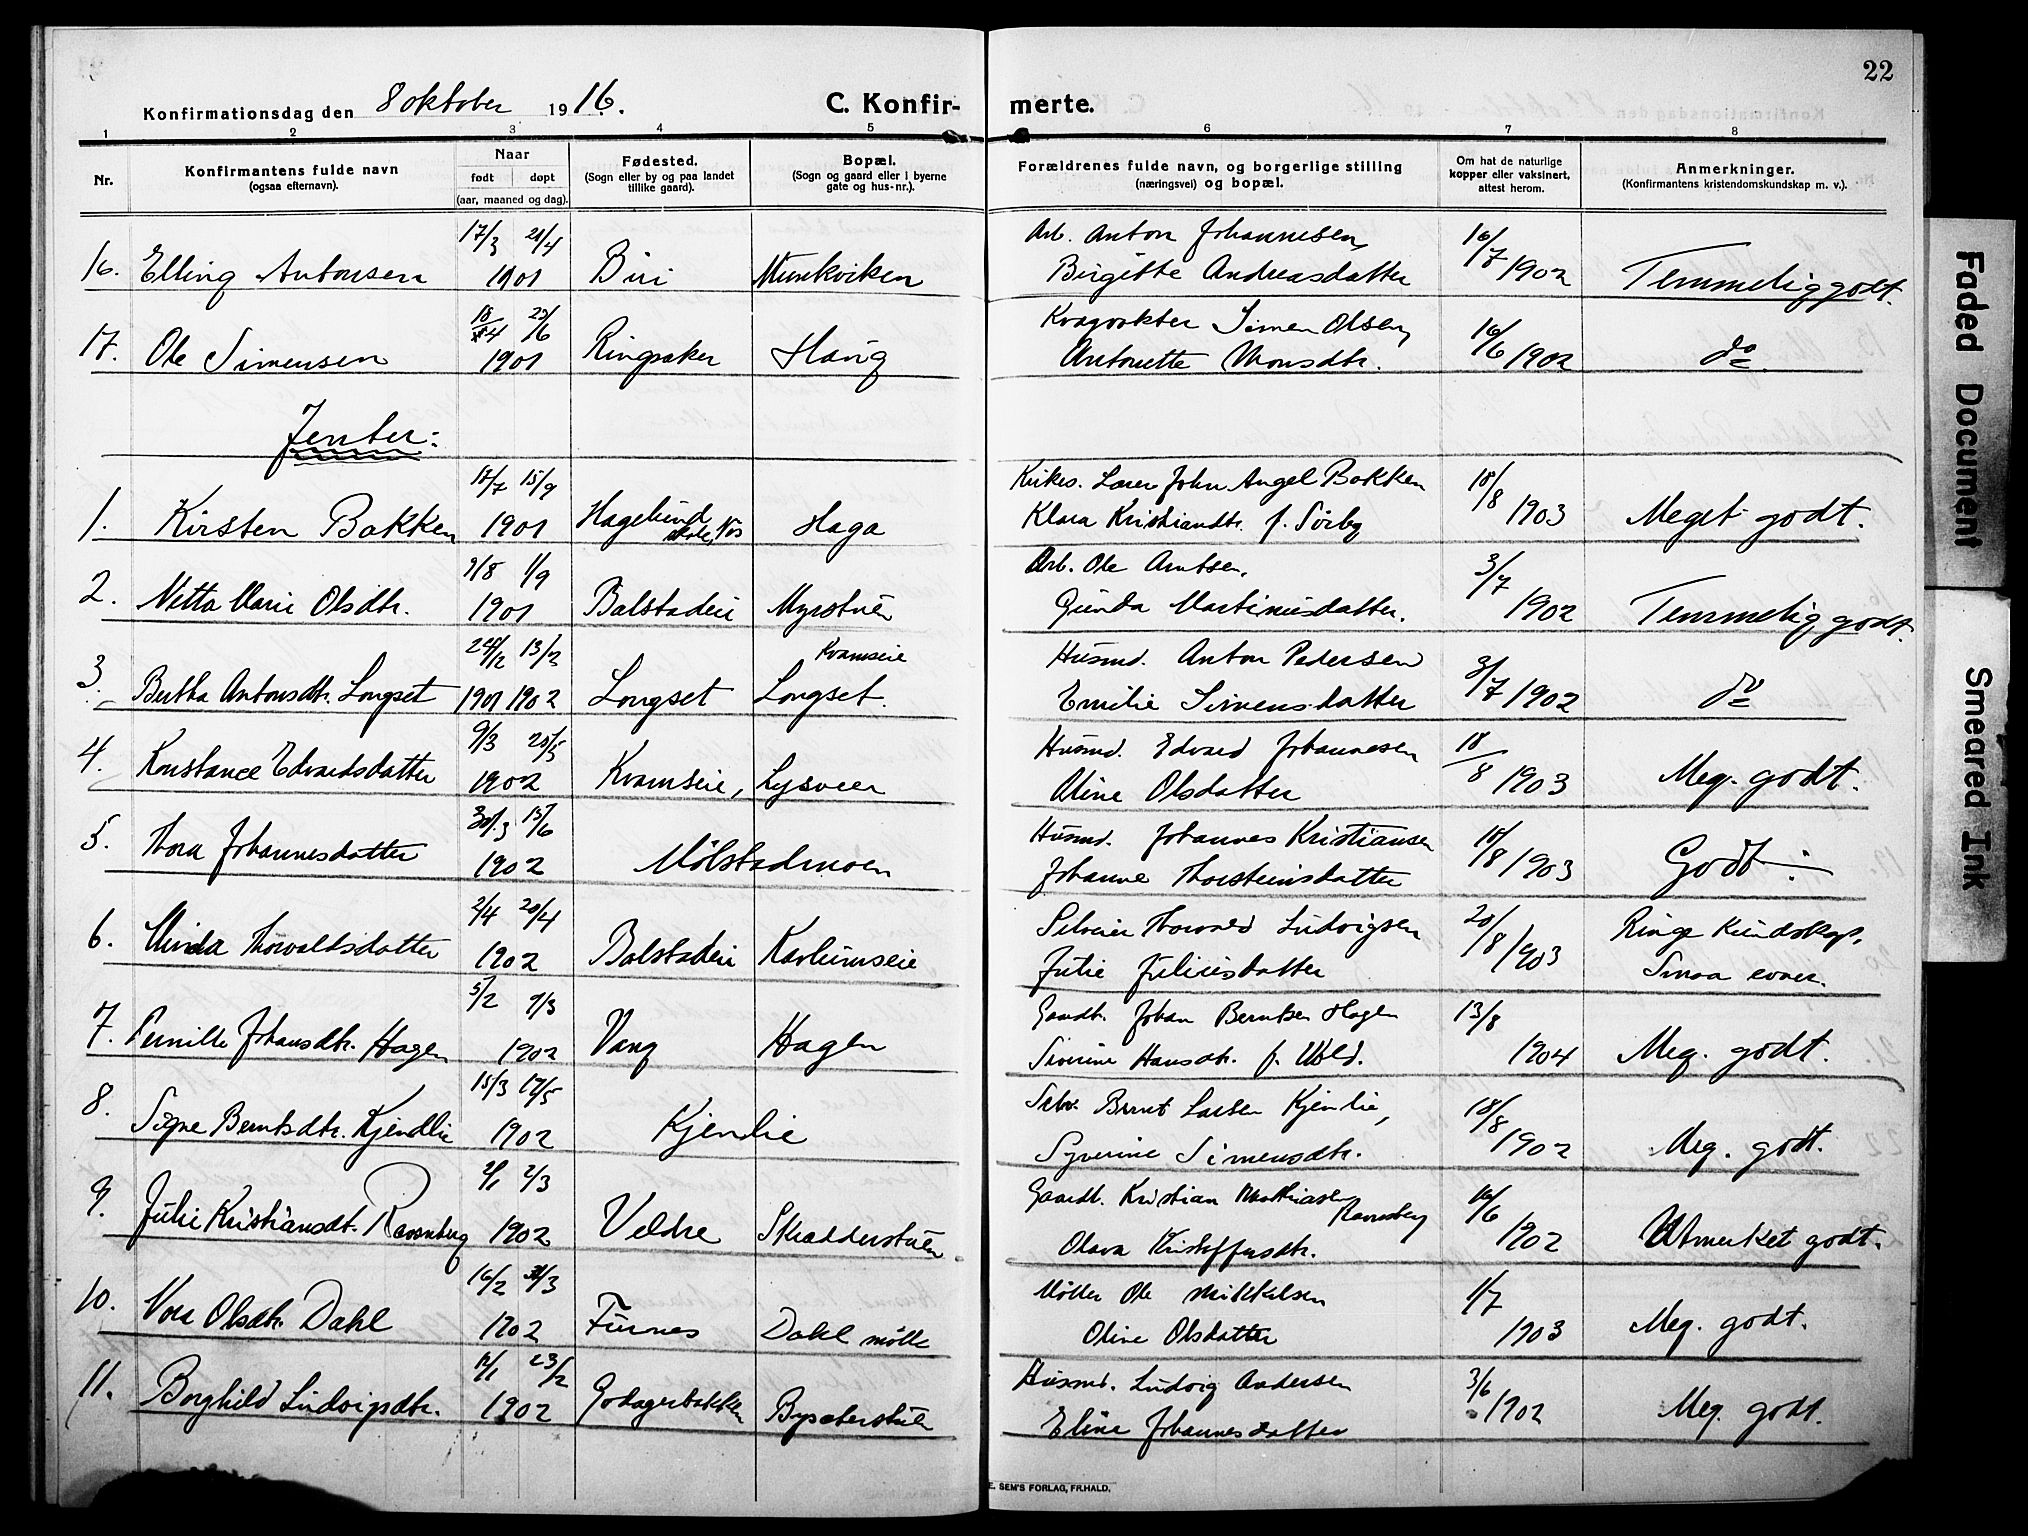 22
Konfirmationsdag den 8 oktober 1916. C. Konfirmerte.
1 2 3 4 5 6 7 8
Nr. Konfirmantens fulde navn (ogsaa efternavn). Naar født døpt (aar, maaned og dag). Fødested. (Sogn eller by og paa landet tillike gaard). Bopæl. (Sogn og gaard eller i byerne gate og hus-nr.). Forældrenes fulde navn, og borgerlige stilling (næringsvei) og bopæl. Om hat de naturlige kopper eller vaksinert, attest herom. Anmerkninger. (Konfirmantens kristendomskundskap m. v.).
17/3 21/4 Arb. Anton Johannesen, 16/7
16. Elling Antonsen 1901 Biri Munkviken Birgitte Andreasdatter 1902 Temmelig godt.
18/4 23/6 Simen Olsen, 16/6
17. Ole Simensen 1901 Ringsaker Haug Antonette Monsdtr. 1902 do
Jenter:
17/7 15/9 Kirkes. Lærer John Angel Bakken 18/8
1. Kirsten Bakken 1901 Hagelund skole, Næs Haga Klara Kristiandtr. f. Sörby 1903 Meget godt.
9/8 1/9 Arb. Ole Arntsen, 3/7
2. Netta Marie Olsdtr. 1901 Balstadeie Myrstuen Gunda Martinusdatter. 1902 Temmelig godt.
24/12 13/2 Kvamseie Husmd. Anton Pedersen 3/7
3. Bertha Antonsdtr. Longset 1901 1902 Longset Longset. Emilie Simensdatter 1902 do
9/3 20/5 Husmd. Edvard Johannesen 18/8
4. Konstance Edvardsdatter 1902 Kvamseie, Lysveen Oline Olsdatter 1903 Meg. godt.
30/3 15/6 Husmd. Johannes Kristiansen 18/8
5. Thora Johannesdatter 1902 Mölstadmoen Johanne Thorsteinsdatter 1903 Godt.
2/4 20/4 Selveier Thorvald Ludvigsen 20/8 Ringe Kundskap.
6. Minda Thorvaldsdatter 1902 Balstadeie Karlumseie Julie Juliusdatter 1903 Smaa evner.
5/2 9/3 Gaardbr. Johan Berntsen Hagen 13/8
7. Pernille Johansdtr. Hagen 1902 Vang Hagen Siverine Hansdtr. f. Wold. 1904 Meg. godt.
15/3 19/5 Selv. Bernt Larsen Kjenlie, 18/8
8. Signe Berntsdtr. Kjendlie 1902 Kjenlie Syverine Simensdtr. 1902 Meg. godt.
2/3 Gaardbr. Kristian Mathiasen Ravnsberg 16/6
9. Julie Kristiansdtr. Ravnsberg 1902 Veldre Skrædderstuen Olava Kristoffersdtr. 1902 Utmerket godt.
16/2 31/3 Möller Ole Mikkelsen 1/7
10. Vora Olsdtr. Dahl 1902 Furnes Dahl mölle Oline Olsdatter 1903 Meg. godt.
12/1 23/2 Husmd. Ludvig Andersen 3/6
11. Borghild Ludvigsdtr. 1902 Godagerbakken Byseterstuen Eline Johannesdatter 1902 Meg. godt.
E. SEM'S FORLAG, FR.HALD.
Faded Document
Smeared Ink